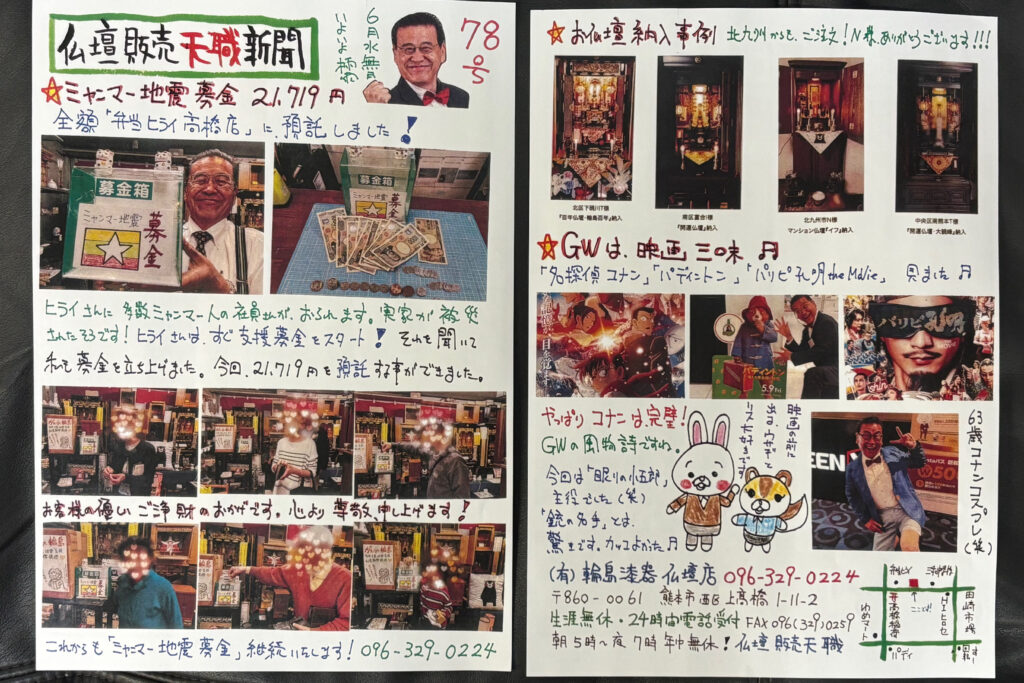 仏壇販売天職新聞
6月水無月
いよいよ橘
78号
ミャンマー地震募金 21,719円
全額「弁当ヒライ高橋店」に、預託しました!
募金箱
ミャンマー地震
募金
募金箱
ミャンマー地震
募金
ヒライさんに多数ミャンマー人の社員さんが、おられます。実家が被災
されたそうです!ヒライさんは、すぐ支援募金をスタート!それを聞いて
私も募金を立ち上げました。今回、21,719円を預託する事ができました。
お客様の優しいご浄財のおかげです。心より尊敬申し上げます!
これからも「ミャンマー地震募金」継続いたします! 096-329-0224
お仏壇納入事例 北九州からも、ご注文!N様、ありがとうございます!!!
北区下硯川T様
『百年仏壇・輪島百年』納入
南区富合I様
『開運仏壇』納入
北九州市N様
マンション仏壇『イフ』納入
中央区南熊本T様
『開運仏壇・大観峰』納入
GWは、映画三昧♬
「名探偵コナン」「パディントン」「パリピ孔明 the Movie」見ました♬
パディントン
5.9 Fri
パリピ孔明
やっぱりコナンは、完璧!
GWの風物詩ですね。
今回は「眠りの小五郎」
主役でした(笑)
「銃の名手」とは、
驚きです。カッコよかった♬
映画の前に
出る、ウサギと
リス大好きです
63歳コナンコスプレ(笑)
(有)輪島漆器仏壇店 096-329-0224
〒860-0061 熊本市西区上高橋1-11-2
生涯無休・24時間電話受付 FAX096(329)0259
朝5時〜夜7時年中無休!仏壇販売天職
ここです!
高橋稲荷
田崎市場
パディ